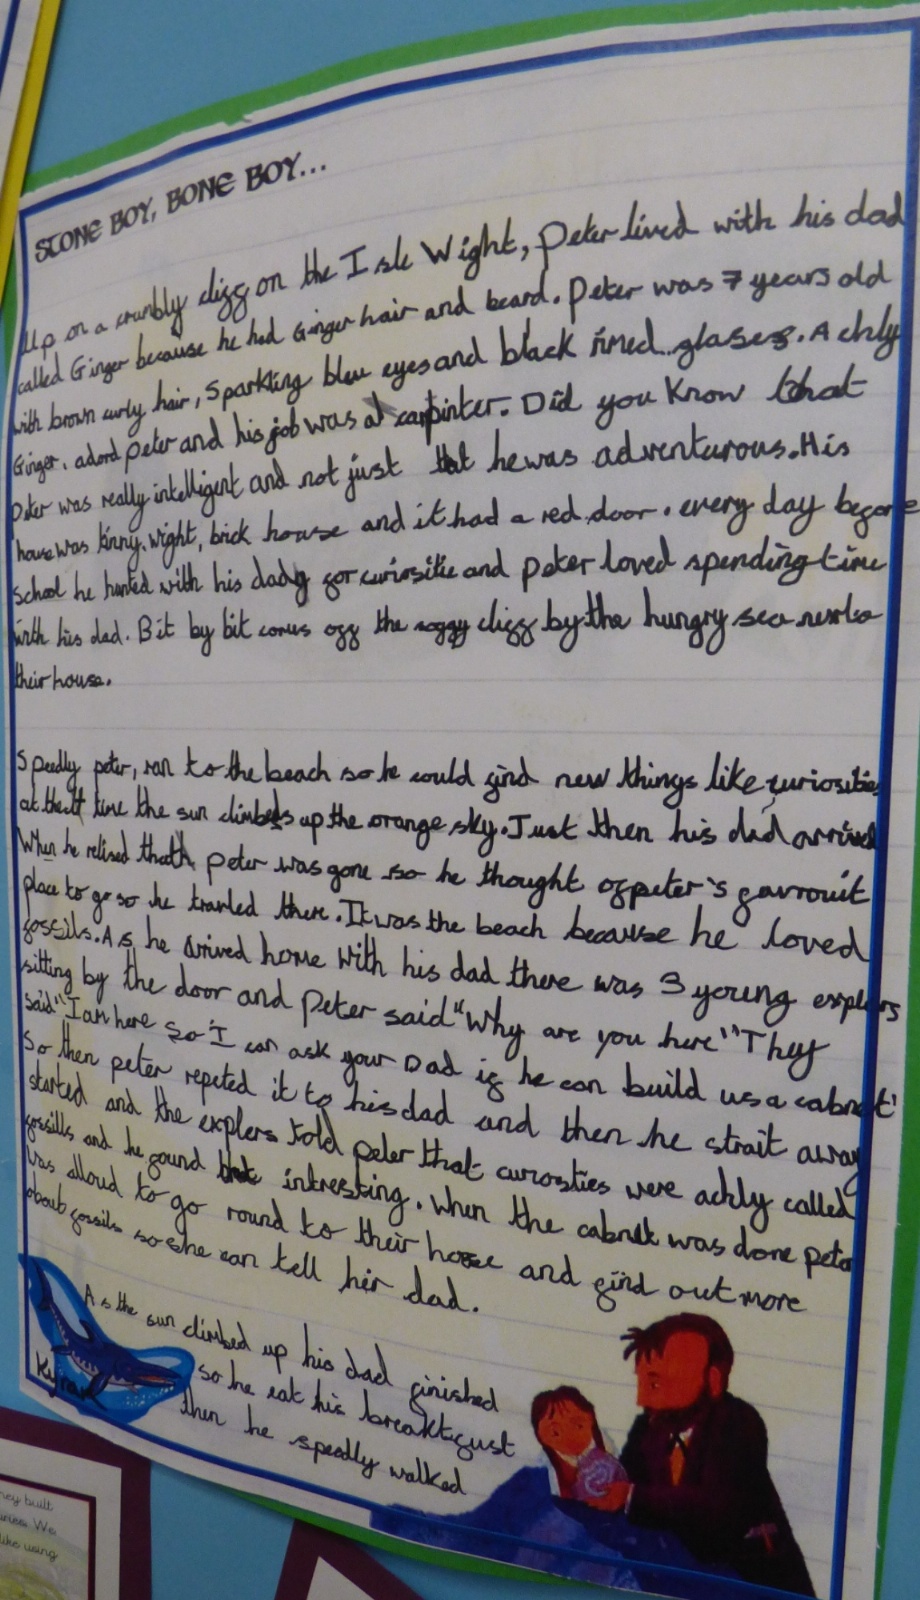 STONE BOY, BONE BOY...
Up on a crumbly cliff on the Isle Wight, Peter lived with his dad
called Ginger because he had Ginger hair and beard. Peter was 7 years old
with brown curly hair, Sparkling bleu eyes and black rimed glases. Achly
Ginger, adord Peter and his job was a carpinter. Did you Know that
Peter was really intelligent and not just that he was adventurous. His
house was tinny, wight, brick house and it had a red door. every day before
School he hunted with his dad for curiorsitie and Peter loved spending time
with his dad. Bit by bit comes off the soggy cliff by the hungry sea nexto
their house.
Speedly peter, ran to the beach so he could find new things like curiosities
at that time the sun climbeds up the orange sky. Just then his dad arrived
When he relised that peter was gone so he thought of peter's favrouit
place to go so he travled there. It was the beach because he loved
fossils. As he arrived home with his dad there was 3 young explers
sitting by the door and Peter said "Why are you here" "They
said "I am here so I can ask your Dad if he can build us a cabnet'
So then peter repeted it to his dad and then he strait away
started and the explers told peter that curiosties were achly called
fossills and he found that intresting. When the cabnet was done peter
was alloud to go round to their house and find out more
about fossils so she can tell hir dad.
As the sun climbed up his dad finished
so he eat his breakfust
then he speedly walked
Kyran
They built
We
like using